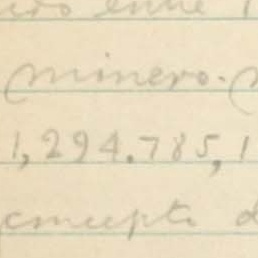 entre
minero.
1,294.785,1
concepto d